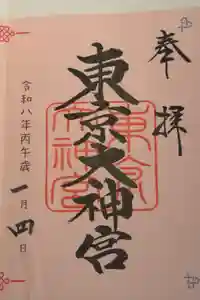 奉拝
東京大神宮
東京大神宮
令和八年丙午歳
一月四日